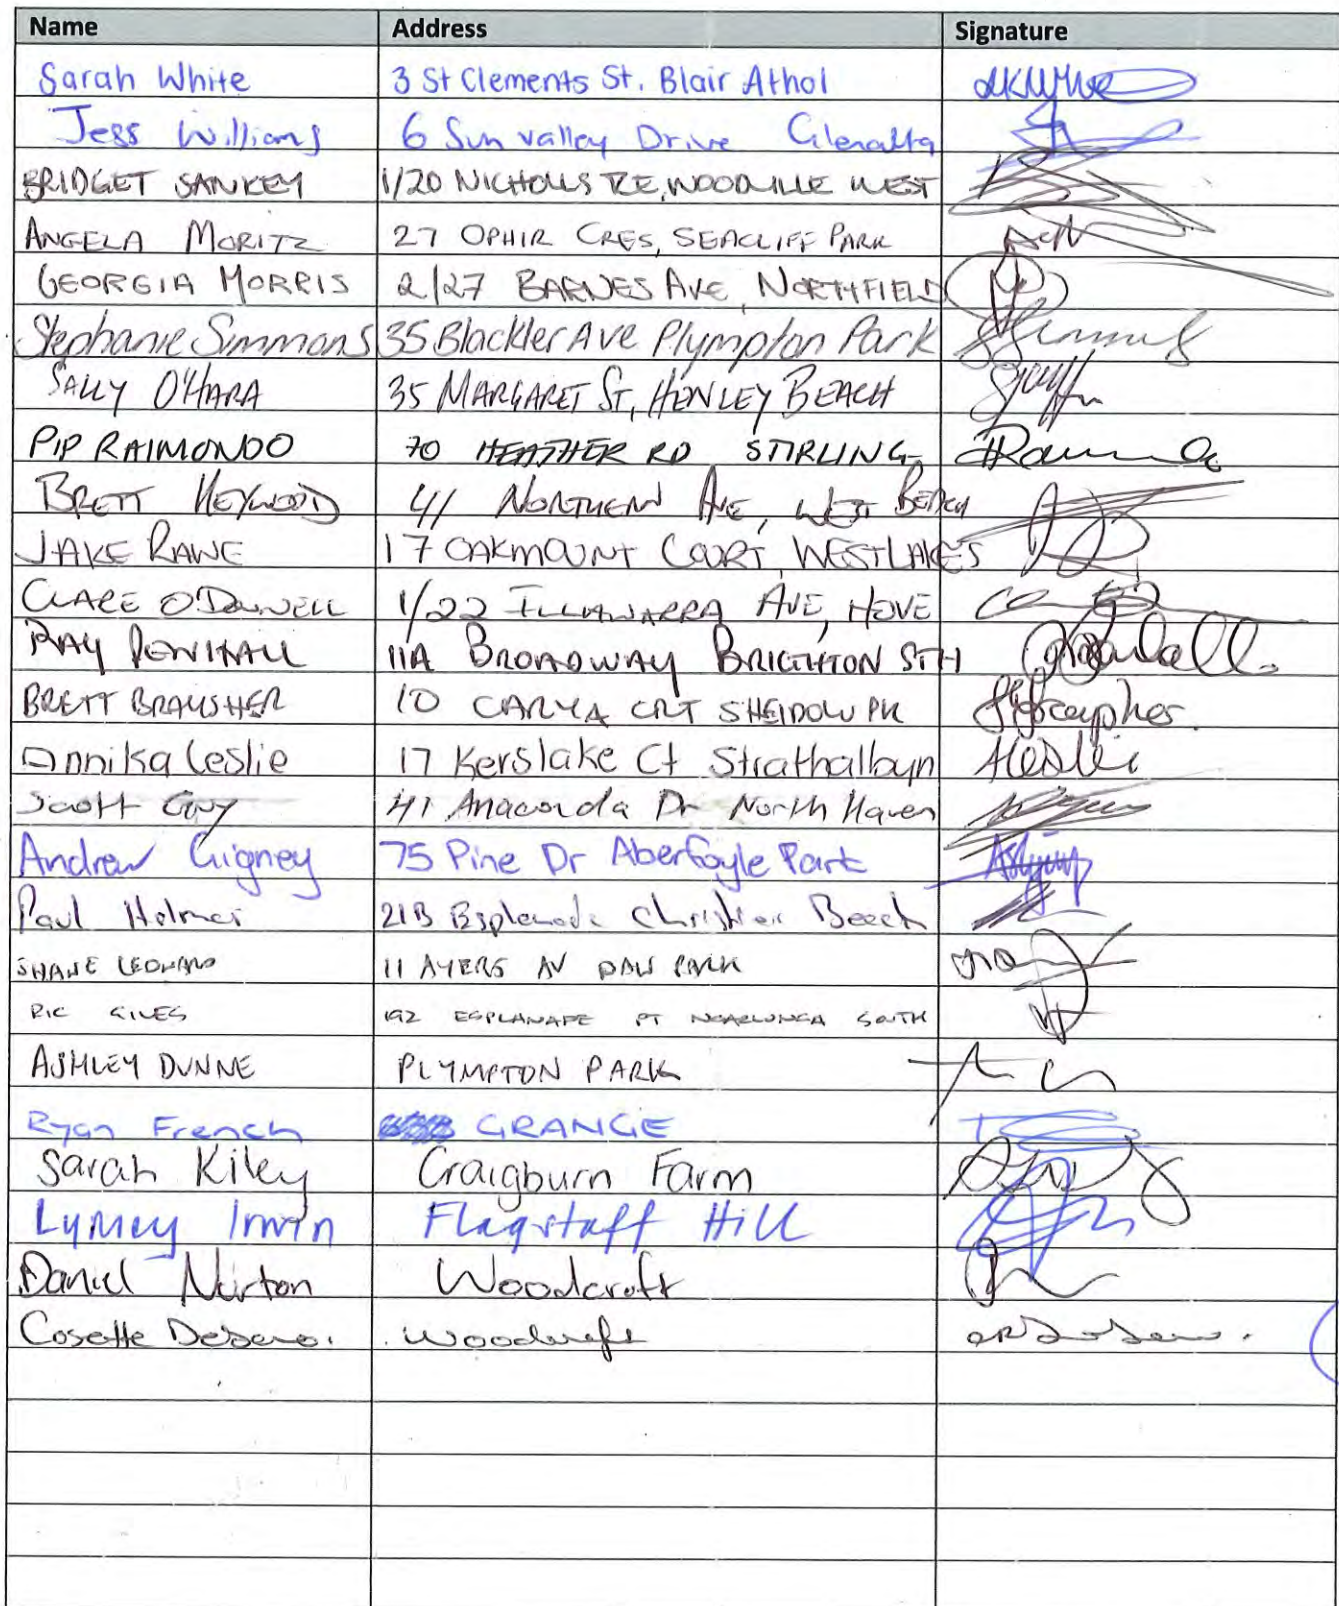 Name Address Signature
Sarah White 3 St Clements St. Blair Athol
Jess Williams 6 Sun valley Drive Glenalta
BRIDGET SANKEY 1/20 NICHOLLS TCE, WOODVILLE WEST
ANGELA MORITZ 27 OPHIR CRES, SEACLIFF PARK
GEORGIA MORRIS 2/27 BARNES AVE, NORTHFIELD
Stephanie Simmons 35 Blackler Ave Plympton Park
SALLY O'HARA 35 MARGARET ST, HENLEY BEACH
PIP RAIMONDO 70 HEATHER RD STIRLING
BRETT HEYWOOD 41 NORTHERN AVE, WEST BEACH
JAKE RAWE 17 OAKMOUNT COURT, WESTLAKES
CLARE O'DONNELL 1/22 ILLAWARRA AVE, HOVE
RAY PENHALL 11A BROADWAY BRIGHTON STH
BRETT 10 CARYA CRT SHEIDOW PK
Annika Leslie 17 Kerslake Ct Strathalbyn
Scott Guy 41 Anaconda Dr North Haven
Andrew Gigney 75 Pine Dr Aberfoyle Park
Paul Holmes 21B Esplanade Christies Beach
SHANE LEONARD 11 AYERS AV DAW PARK
RIC GILES 192 ESPLANADE PT NOARLUNGA SOUTH
ASHLEY DUNNE PLYMPTON PARK
Ryan French GRANGE
Sarah Kiley Craigburn Farm
Irwin Flagstaff Hill
Daniel Norton Woodcroft
Cosette Woodcroft